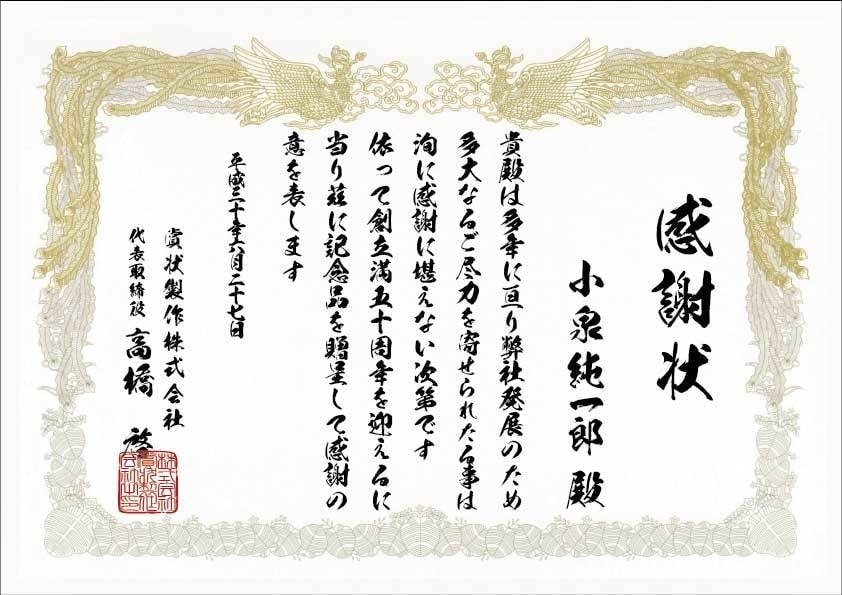 感謝状
小泉純一郎 殿
貴殿は多年に亘り弊社発展のため
多大なるご尽力を寄せられたる事は
洵に感謝に堪えない次第です
依って創立満五十周年を迎えるに
当り茲に記念品を贈呈して感謝の
意を表します
平成三十年六月二十七日
賞状製作株式会社
代表取締役 高橋 啓
株式会社
賞状製作
会社之印